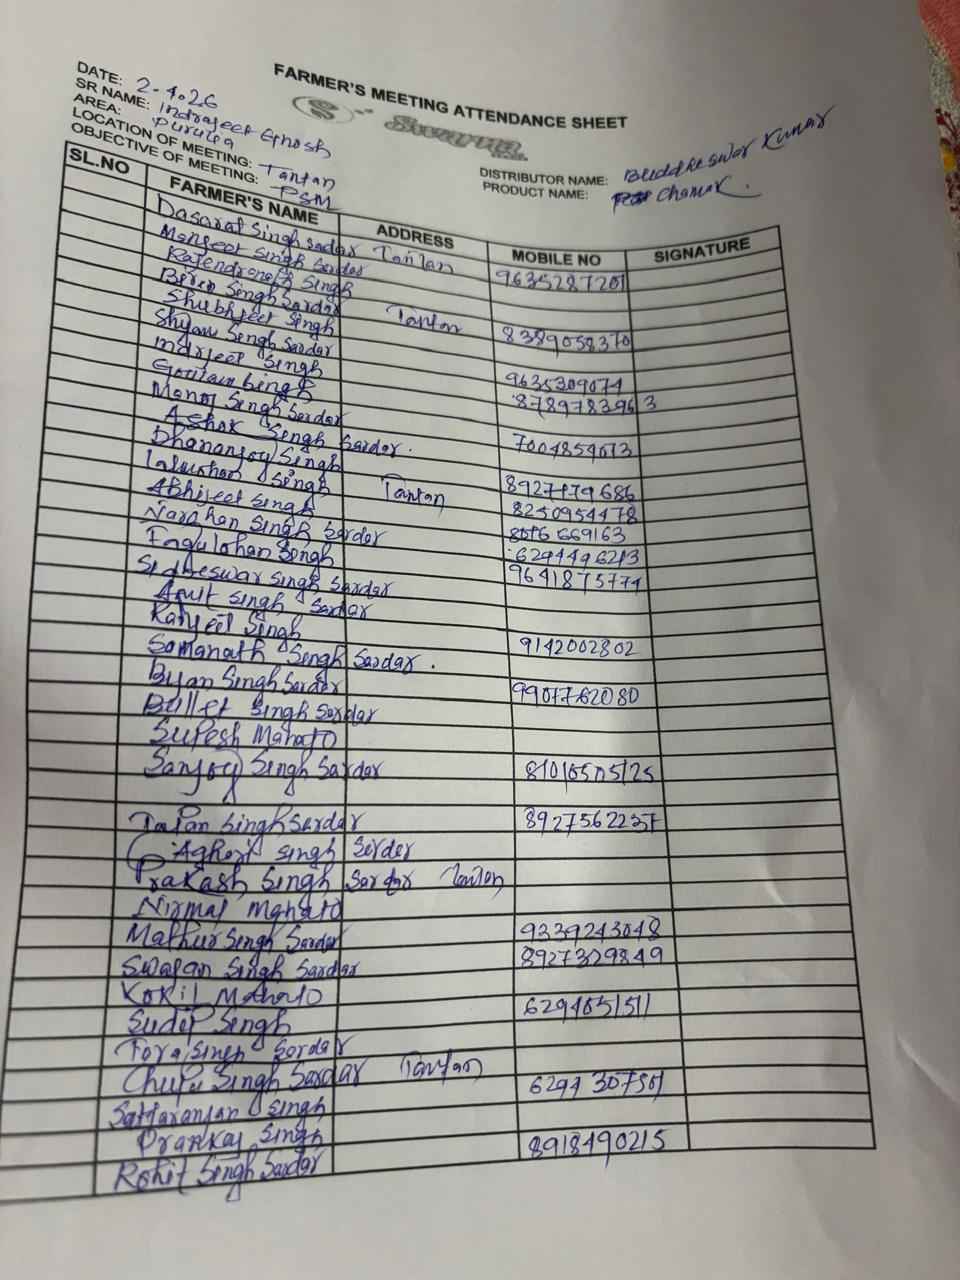 FARMER'S MEETING ATTENDANCE SHEET
DATE: 2-4.26
SR NAME: Indrajeet Ghosh
AREA: Purulia
LOCATION OF MEETING: Tantan
OBJECTIVE OF MEETING: PSM
DISTRIBUTOR NAME: Buddheswar Kumar
PRODUCT NAME: Chamak.
SL.NO FARMER'S NAME ADDRESS MOBILE NO SIGNATURE
Dasarat Singh Sardar Tantan 9635287201
Manjeet Singh Sardar
Rajendranath Singh
Biren Singh Sardar Tantan 8389058370
Shubhjeet Singh
Shyam Singh Sardar 9635309074
Indrjeet Singh 8789783963
Goutam Singh
Manoj Singh Sardar 7004854673
Ashok Singh Sardar.
Dhananjoy Singh 8927179686
Lalmohan Singh Tantan 8250954478
Abhijeet Singh 8016669163
Narahan Singh Sardar 6294496243
Singh 9641875774
Sidheswar Singh Sardar
Amit Singh Sardar
Ranjeet Singh 9142002802
Somanath Singh Sardar.
Singh Sardar 9907762080
Bullet Singh Sardar
Suresh Mahato
Sanjoy Singh Sardar 81016505125
Tapan Singh Sardar 8927562237
Aghort Singh Serder
Prakash Singh Sardar Tantan
Nirmal Mahato
Mathur Singh Sardar 9339243048
Swapan Singh Sardar 8927329849
Kokil Mahato
Sudip Singh 6294051511
Singh Sordar
Singh Sardar Tantan 6294307501
Sattaranjan Singh
Prankaj Singh 8918490215
Rohit Singh Sardar